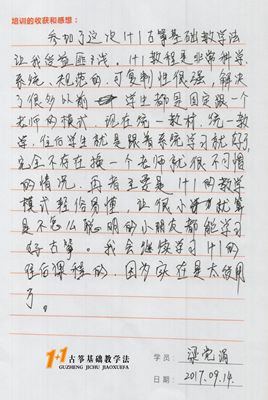 培训的收获和感想：
参加了这次1+1古筝基础教学法
让我倍觉匪浅。1+1教程是非常科学、
系统、规范的，可复制性很强，解决
了很多以前 学生都是固定跟一个
老师的模式，现在统一教材，统一教
学，往后学生就是跟着系统学习就好了，
完全不存在换一个老师就很不习惯
的情况，再者主要是1+1的教学
模式轻俗易懂，让很小 就算
是不怎么聪明的小朋友都能学习
好古筝。我会继续学习1+1的
往后课程的，因为实在是太实用
了。
1+1古筝基础教学法
GUZHENG JICHU JIAOXUEFA
学员：梁
日期：2017.09.14.